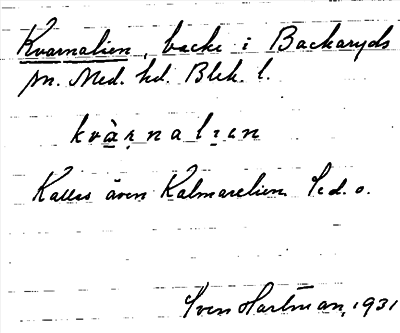 Kvarnalien, backe i Backaryds
sn. Med. hd. Blek. l.
kvàrnalıɛn
Kallas även Kalmarelien. Se d. o.
Sven Hartman, 1931